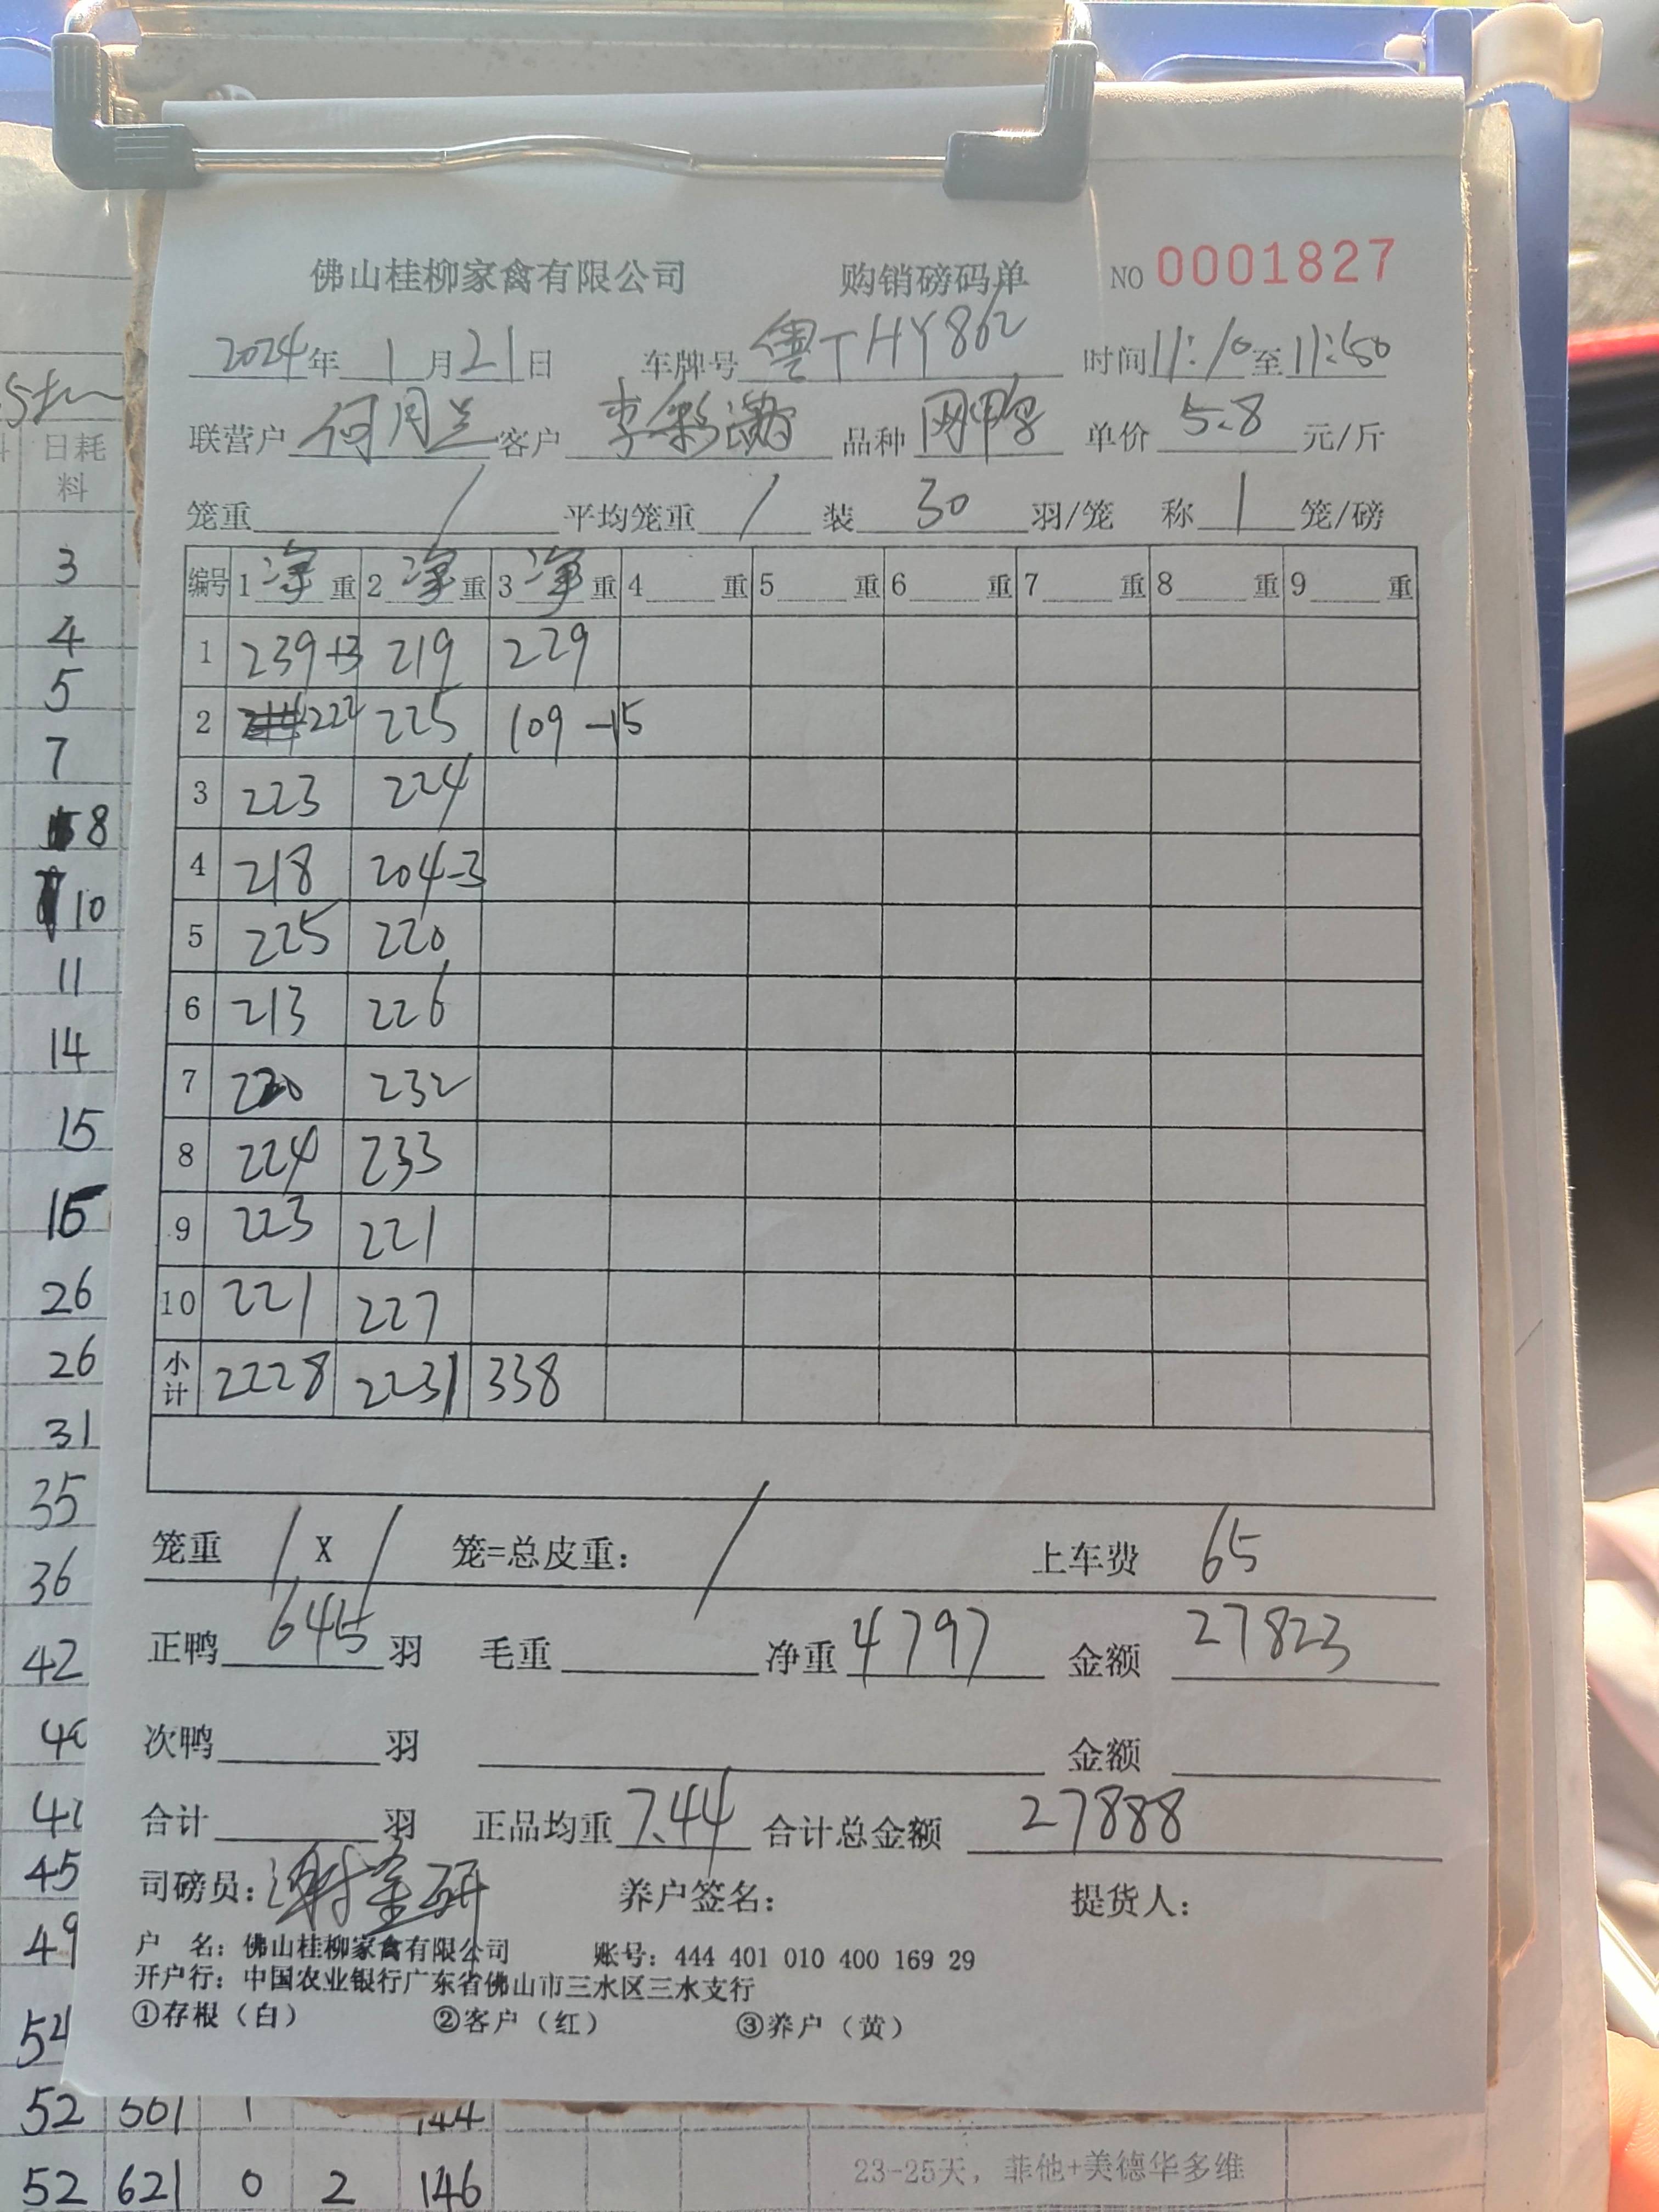 佛山桂柳家禽有限公司 购销磅码单 NO 0001827
2024年 1月21日 车牌号 粤THY862 时间11:10至11:50
联营户 何月兰 客户 李彩 品种 网鸭 单价 5.8 元/斤
笼重 / 平均笼重 / 装 30 羽/笼 称 1 笼/磅
编号 1 净 重 2 净 重 3 净 重 4 重 5 重 6 重 7 重 8 重 9 重
1 239+3 219 229
2 222 225 109 -15
3 223 224
4 218 204-3
5 225 220
6 213 226
7 220 232
8 224 233
9 223 221
10 221 227
小计 2228 2231 338
笼重 / X / 笼=总皮重: / 上车费 65
正鸭 645 羽 毛重 净重 4797 金额 27823
次鸭 羽 金额
合计 羽 正品均重 7.44 合计总金额 27888
司磅员: 谢金研 养户签名: 提货人:
户 名: 佛山桂柳家禽有限公司 账号: 444 401 010 400 169 29
开户行: 中国农业银行广东省佛山市三水区三水支行
①存根(白) ②客户(红) ③养户(黄)
日耗
料
3
4
5
7
8
10
11
14
15
15
26
26
31
35
36
42
45
49
52 1 144
52 621 0 2 146
23-25天, 菲他+美德华多维